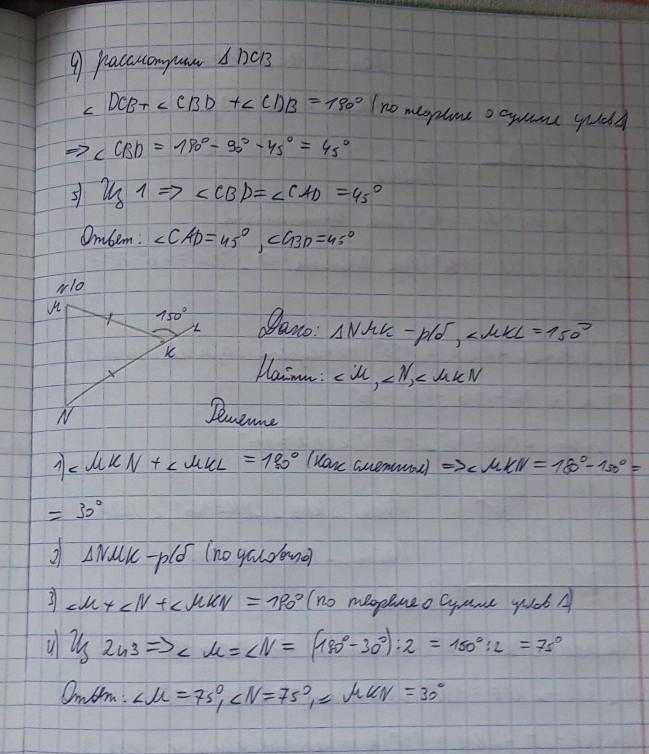 4) рассмотрим Δ DCB
∠ DCB + ∠ CBD + ∠ CDB = 180° (по теореме о сумме углов Δ)
=> ∠ CBD = 180° - 90° - 45° = 45°
5) Из 1 => ∠ CBD = ∠ CAD = 45°
Ответ: ∠CAD = 45°, ∠CBD = 45°
N10
M
150°
L
K
N
Дано: ΔNMK - р/б, ∠MKL = 150°
Найти: ∠M, ∠N, ∠MKN
Решение
1) ∠MKN + ∠MKL = 180° (как смежные) => ∠MKN = 180° - 150° =
= 30°
2) ΔNMK - р/б (по условию)
3) ∠M + ∠N + ∠MKN = 180° (по теореме о сумме углов Δ)
4) Из 2 и 3 => ∠ M = ∠N = (180° - 30°) : 2 = 150° : 2 = 75°
Ответ: ∠M = 75°, ∠N = 75°, ∠ MKN = 30°